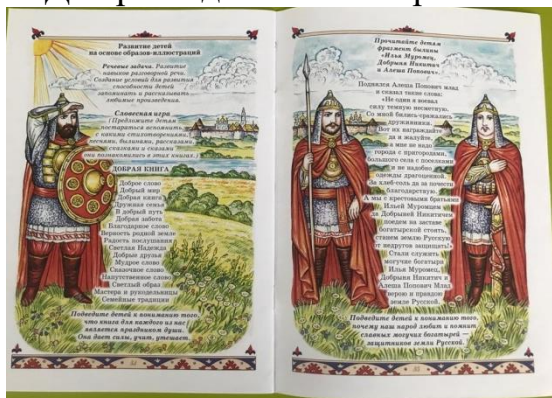 Развитие детей
на основе образов-иллюстраций
Речевые задачи. Развитие
навыков разговорной речи.
Создание условий для развития
способности детей
запоминать и рассказывать
любимые произведения.
Словесная игра
(Предложите детям
постараться вспомнить,
с какими стихотворениями,
песнями, былинами, рассказами,
сказками и сказами
они познакомились в этих книгах.)
ДОБРАЯ КНИГА
Доброе слово
Добрый мир
Добрая книга
Дружная семья
В добрый путь
Добрая забота
Благодарное слово
Верность родной земле
Радость послушания
Светлая Надежда
Добрые друзья
Мудрое слово
Сказочное слово
Напутственное слово
Светлый образ
Мастера и рукодельницы
Семейные традиции
Подведите детей к пониманию того,
что книга для каждого из нас
является праздником души.
Она дает силы, учит, утешает.
Прочитайте детям
фрагмент былины
«Илья Муромец,
Добрыня Никитич
и Алеша Попович».
Поднялся Алеша Попович млад
и сказал такие слова:
«Не один я воевал
силу темную несметную.
Со мной бились-сражались
дружинники.
Вот их награждайте
да и жалуйте,
а мне не надо
города с пригородами,
большого села с поселками
и не надобно
одежды драгоценной.
За хлеб-соль да за почести
благодарствую.
А мы с крестовыми братьями
Ильей Муромцем
да Добрыней Никитичем
поедем на заставе
богатырской стоять,
станем землю Русскую
от недругов защищать!»
Стали служить
могучие богатыри
Илья Муромец,
Добрыня Никитич и
Алеша Попович Млад
верою и правдою
земле Русской.
Подведите детей к пониманию того,
почему наш народ любит и помнит
славных могучих богатырей —
защитников земли Русской.